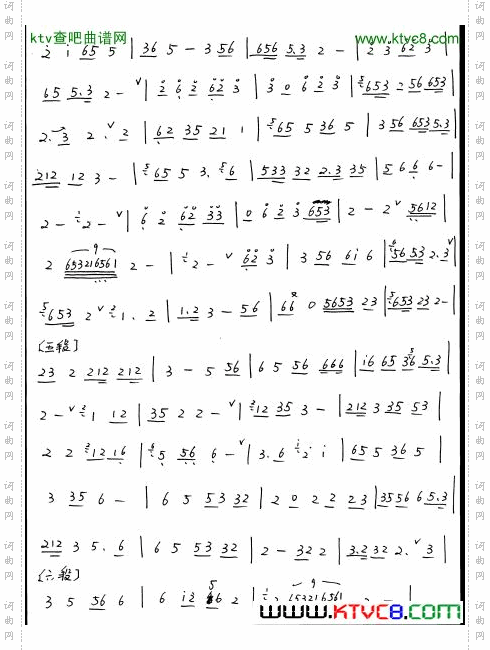 ktv查吧曲谱网 www.ktvc8.com
2 i 65 5 | 36 5 - 3 56 | 656 5.3 2 - | 2 3 62 3 |
65 5.3 2 - ∨ | 2 6 2 62 3 | 3 0 6 2 3 | 5653 2 56 653
2. 3 2. ∨ 2 | 62 35 21 1 | 565 5 36 5 | 3 56 653 5.3 |
212 12 3 - | 565 5 3. 56 | 533 32 2.3 35 | 5 6 6 6 - |
2 - i2 - ∨ | 6 2 62 33 | 0 6 2 3 653 | 2 - 2 ∨ 5612 |
2 653216561 2 - | i2 - ∨ 62 3 | 3 56 6i 6 | 656 53 2.3 ∨ |
5653 2 ∨ 21. 2 | 1.2 3 - 56 | 66 0 5653 23 | 5653 23 2 - |
(五段)
23 2 212 212 | 3 - 5 56 | 6 5 56 666 | i6 65 36 5.3 |
2 - ∨ 21 12 | 35 2 2 - ∨ | 212 35 3 - | 212 3 35 53 |
2 2 212 16 | 65 56 6 - ∨ | 3. 6 i2 i | 65 5 36 5 |
3 35 6 - | 6 5 53 32 | 2 0 2 2 23 | 35 56 6 5.3 |
212 3 5. 6 | 6 5 53 32 | 2 - 32 2 | 3.2 32 2. 3 |
(六段)
3 5 56 6 | 6 i2 6 2 |
WWW.KTVC8.COM
词曲网
词曲网
词曲网
词曲网
词曲网
词曲网
词曲网
词曲网
词曲网
词曲网
词曲网
词曲网
词曲网
词曲网